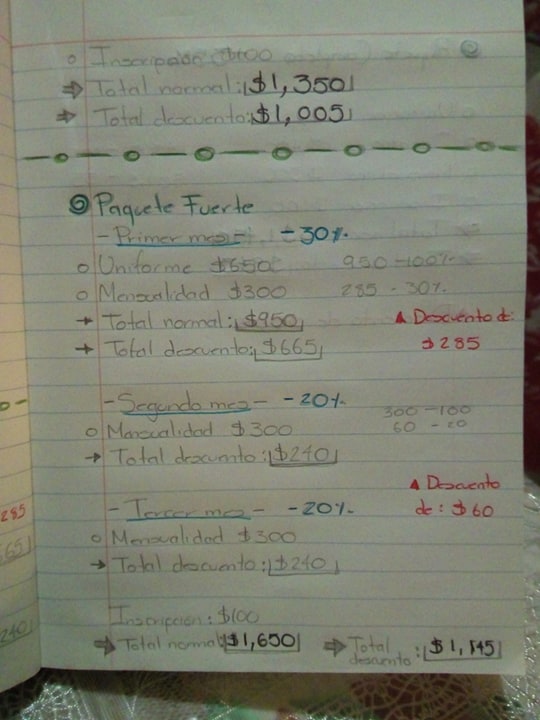 Inscripción ($100
Total normal: $1,350
Total descuento: $1,005
Paquete Fuerte
- Primer mes - -30%
Uniforme $650 950 -100%
Mensualidad $300 285 - 30%
Total normal: $950 Descuento de:
Total descuento: $665 $285
- Segundo mes - -20% 300 -100
Mensualidad $300 60 - 20
Total descuento: $240
Descuento
- Tercer mes - -20% de: $60
285
Mensualidad $300
65
Total descuento: $240
Inscripción: $100
240
Total normal: $1,650 Total descuento: $1,145